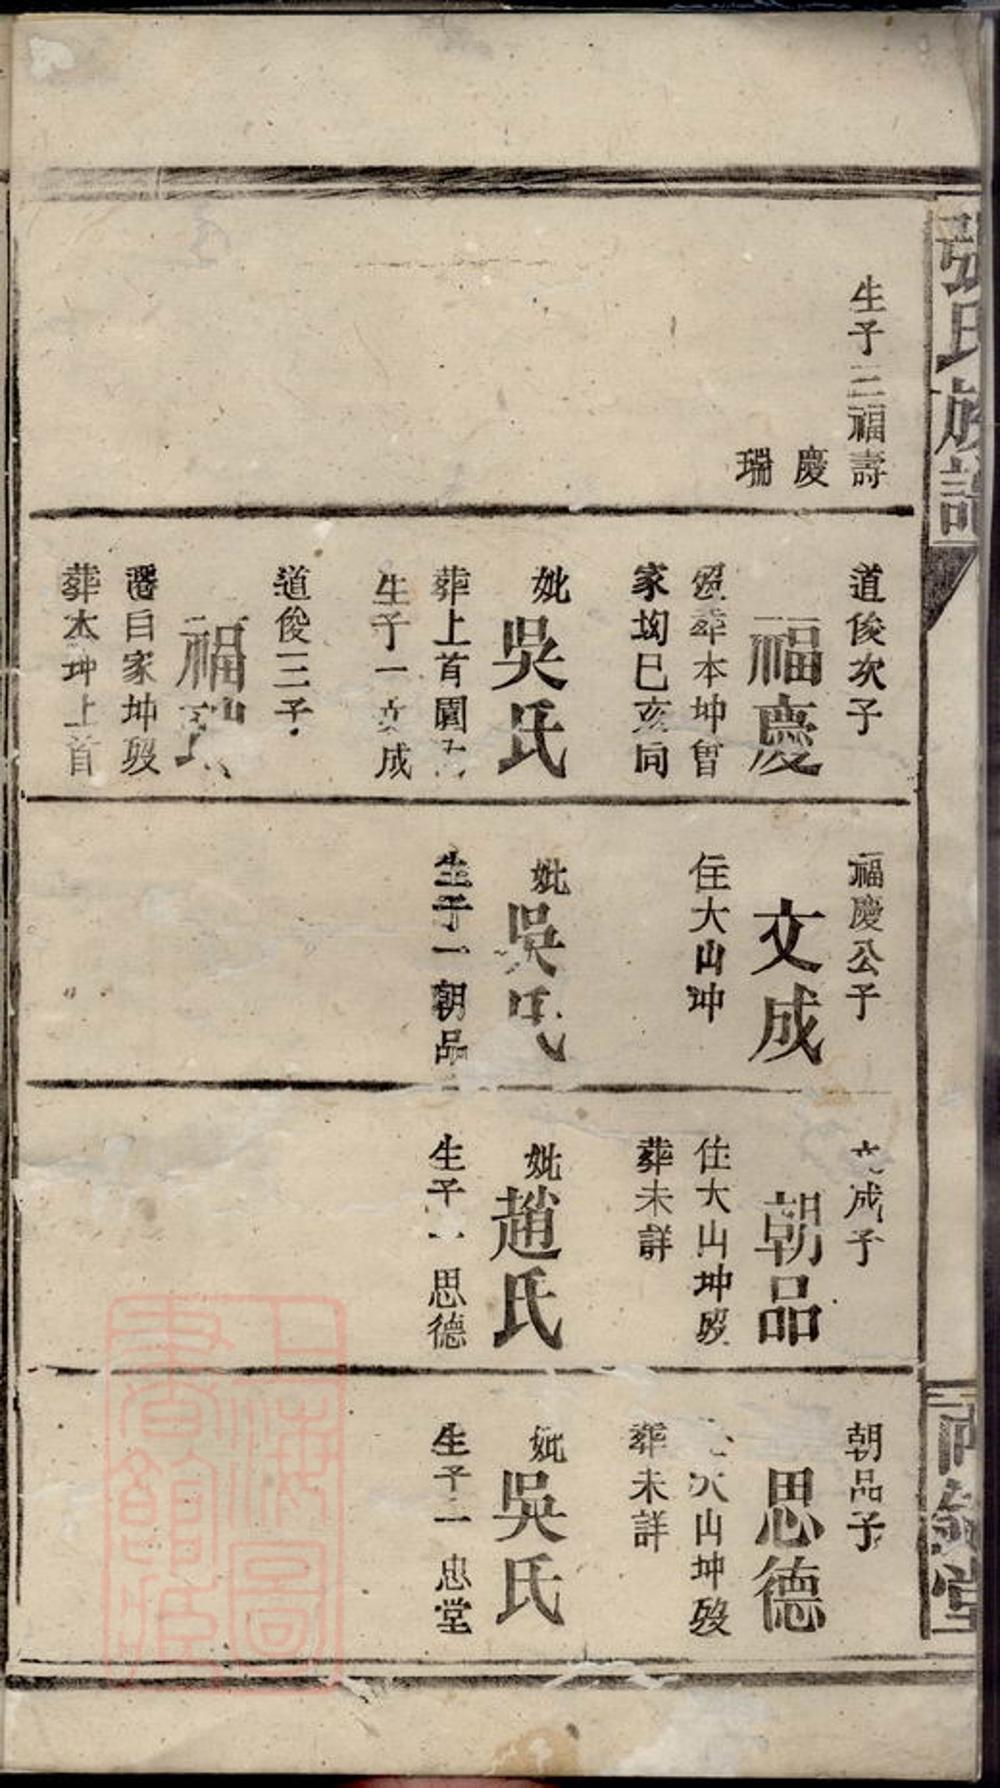 張氏族譜
生子三福壽
慶
瑞
道俊次子
福慶
歿葬本坤曾
家坳巳亥同
妣吳氏
葬上首園
生子一文成
道俊三子
福瑞
遷白家坤歿
葬本坤上首
福慶公子
文成
住大山冲
妣吳氏
生子一朝品
文成子
朝品
住大山坤歿
葬未詳
妣趙氏
生子一思德
朝品子
思德
大山坤歿
葬未詳
妣吳氏
生子二忠堂
堂
上海圖書館藏